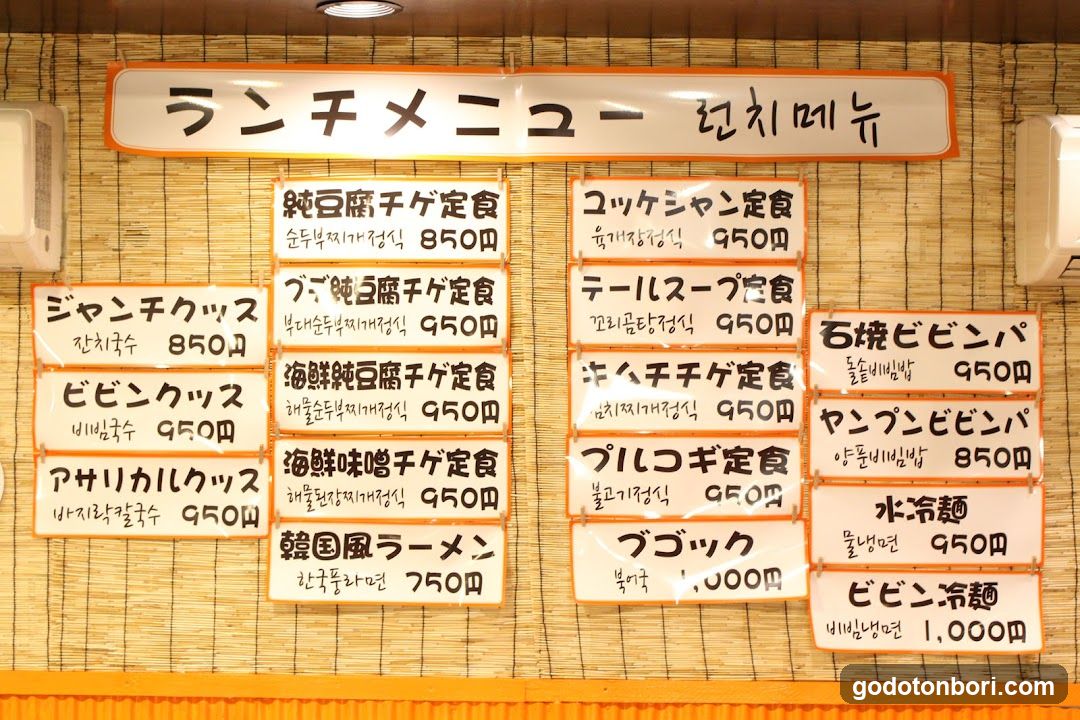 ランチメニュー 런치메뉴
ジャンチクッス
잔치국수 850円
ビビンクッス
비빔국수 950円
アサリカルクッス
바지락칼국수 950円
純豆腐チゲ定食
순두부찌개정식 850円
純豆腐チゲ定食
부대순두부찌개정식 950円
海鮮純豆腐チゲ定食
해물순두부찌개정식 950円
海鮮味噌チゲ定食
해물된장찌개정식 950円
韓国風ラーメン
한국풍라면 750円
ユッケジャン定食
육개장정식 950円
テールスープ定食
꼬리곰탕정식 950円
キムチチゲ定食
김치찌개정식 950円
プルコギ定食
불고기정식 950円
ブゴック
북어국 1,000円
石焼ビビンパ
돌솥비빔밥 950円
ヤンプンビビンパ
양푼비빔밥 850円
水冷麺
물냉면 950円
ビビン冷麺
비빔냉면 1,000円
godotonbori.com